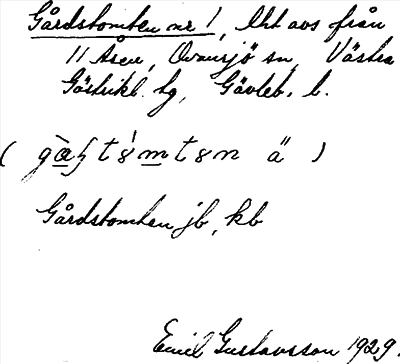 Gårdstomten nr 1, lht avs från
11 Åsen, Ovansjö sn, Västra
Gästrikl. tg, Gävleb. l.
Gårdstomten jb, kb
Emil Gustavsson 1929.